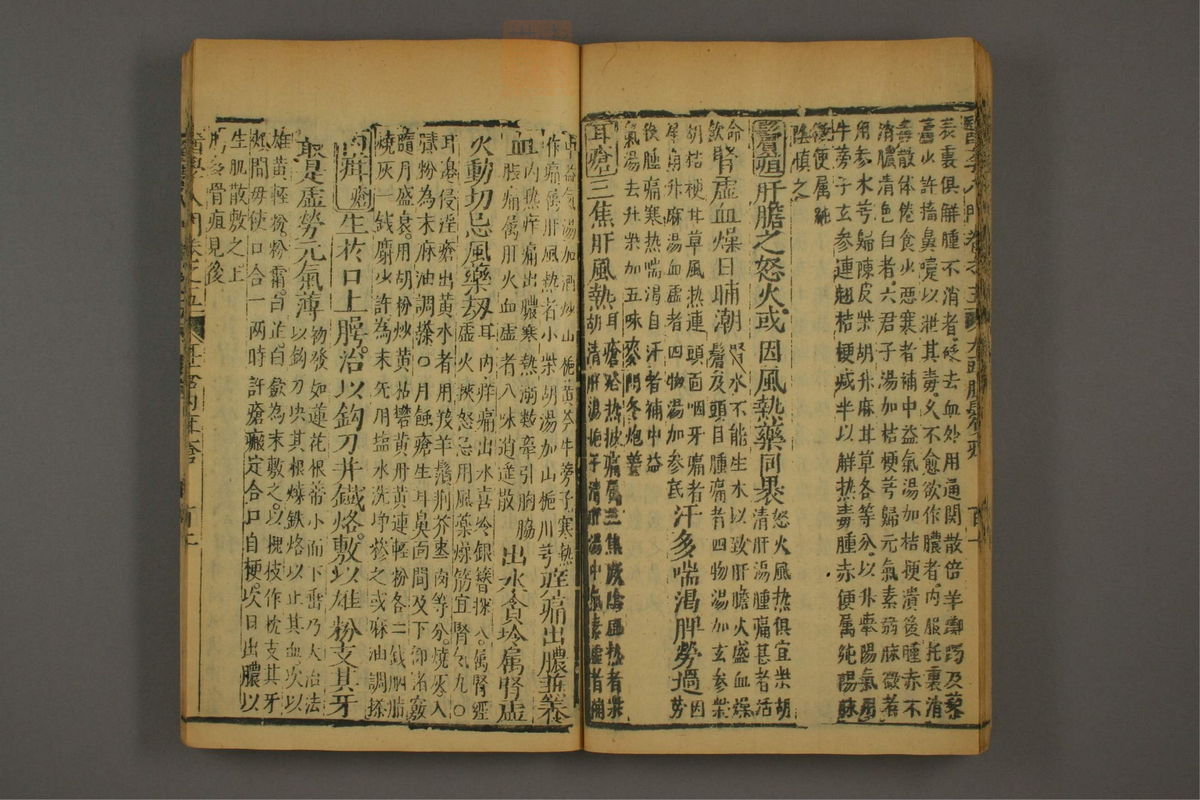 表裏俱解腫不消者砭去血外用通關散倍羊躑躅及藜
蘆少許搐鼻嚏以泄其毒久不愈欲作膿者內服托裏消
毒散體倦食少惡寒者補中益氣湯加桔梗潰後腫赤不
消膿清色白者六君子湯加桔梗芎歸元氣素弱脉微者
用參朮芎歸陳皮柴胡升麻甘草各等分以升舉陽氣用
牛蒡子玄參連翹桔梗減半以解熱毒腫赤便屬純陽
便属純
陰慎之
鬢疽肝膽之怒火或因風熱藥同衮怒火風熱俱宜柴胡
清肝湯腫痛甚者活
命飲腎虛血燥日晡潮腎水不能生木以致肝膽火盛血燥
鬢及頭目腫痛者四物湯加玄參柴
胡桔梗甘草風熱連頭面咽牙痛者
犀角升麻湯血虛者四物湯加參芪汗多喘渴脾勞過因勞
後腫痛寒熱喘渴自汗者補中益
氣湯去升柴加五味麥門冬炮薑
耳瘡三焦肝風熱耳瘡發熱掀痛屬三焦厥陰風熱者柴
胡清肝湯梔子清肝湯中氣素虛者補
中益氣湯加酒炒山梔黃芩牛蒡子寒熱
作痛属肝風熱者小柴胡湯加山梔川芎痒痛出膿兼養
血內熱痒痛出膿寒熱溺數牽引胸脇
脹痛屬肝火血虛者八味逍遙散出水貪冷屬腎虛
火動切忌風藥刼耳內痒痛出水喜冷銀簪探入屬腎經
虛火挾怒忌用風藥燥筋宜腎氣丸○
耳邊侵淫瘡出黃水者用羖羊鬚荊芥枣肉等分燒灰入
膩粉為末麻油調搽○月蝕瘡生耳鼻面間及下部諸竅
隨月盛衰用胡粉炒黃枯礬黃丹黃連輕粉各二錢胭脂
燒灰一錢麝少許為末先用塩水洗淨摻之或麻油調搽
生於口上腭治以鈎刀并鐵烙敷以雄粉支其牙
最是虛勞元氣薄物發如蓮花根蒂小而下垂乃大治法
以鈎刀决其根燒鉄烙以止其血次以
雄黃輕粉粉霜白芷白斂為末敷之以槐枝作枕支其牙
頰間毋使口合一兩時許瘡瘢定合口自便次日出膿以
生肌散敷之上
腭多骨疽見後